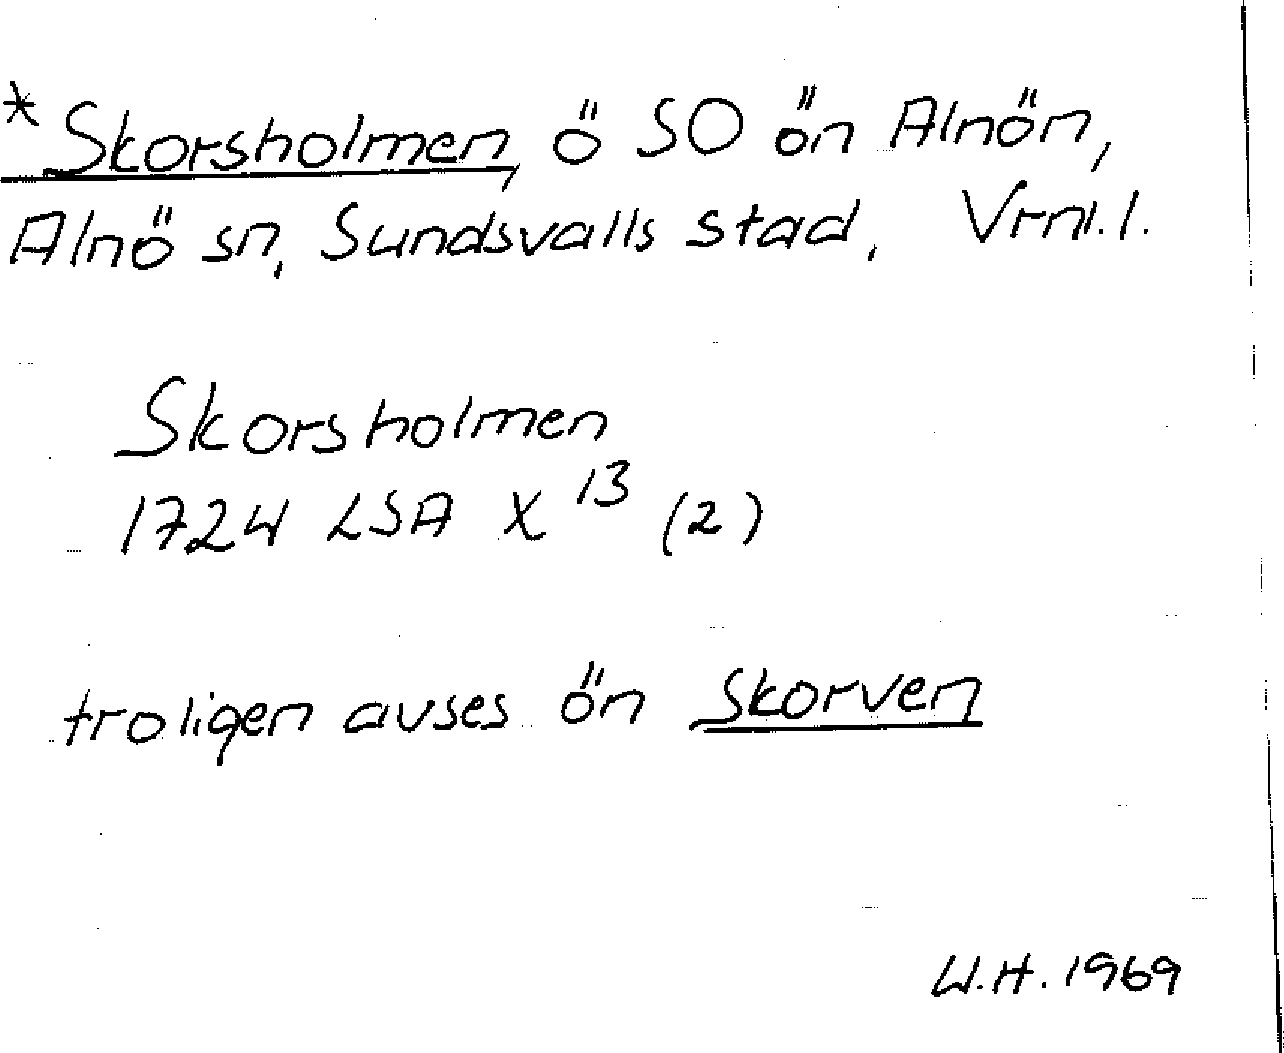 *Skorsholmen, ö SO ön Alnön,
Alnö sn, Sundsvalls stad, Vrml.
Skorsholmen
1724 LSA X 13 (2)
troligen avses ön Skorven
W.H. 1969